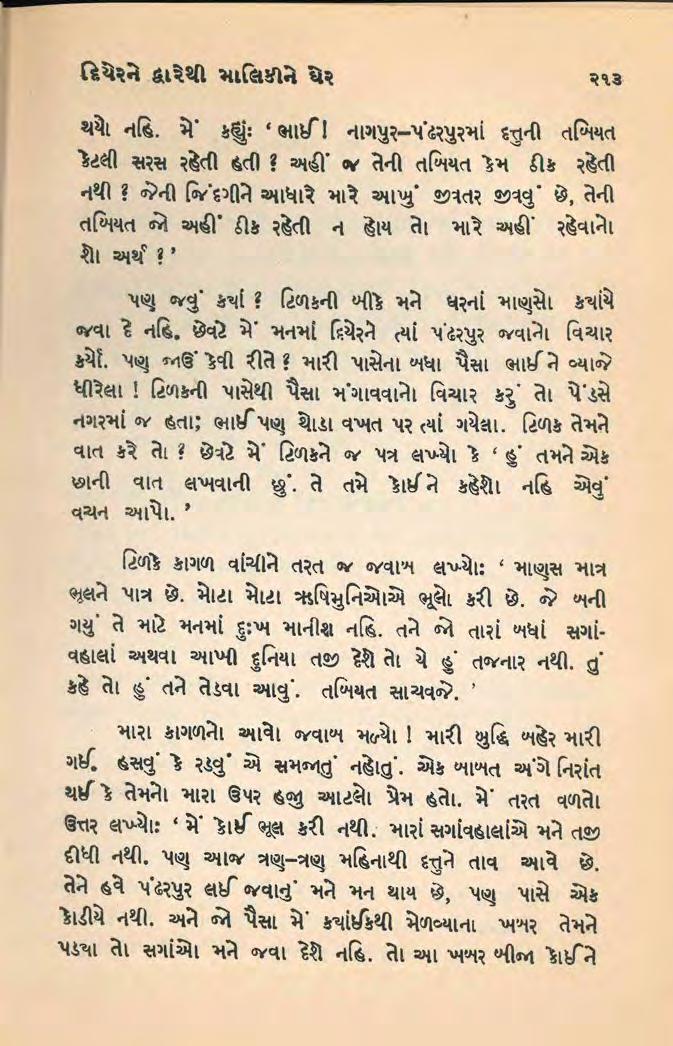 દિયેરને દ્વારેથી માલિકીને ઘેર ૨૧૩
થયો નહિ. મેં કહ્યું: ‘ભાઈ! નાગપુર–પંઢરપુરમાં દત્તુની તબિયત
કેટલી સરસ રહેતી હતી ? અહીં જ તેની તબિયત કેમ ઠીક રહેતી
નથી ? જેની જિંદગીને આધારે મારે આખું જીવતર જીવવું છે, તેની
તબિયત જો અહીં ઠીક રહેતી ન હોય તો મારે અહીં રહેવાનો
શો અર્થ ?’
પણ જવું કયાં ? ટિળકની બીકે મને ઘરનાં માણસો કયાંયે
જવા દે નહિ. છેવટે મેં મનમાં દિયેરને ત્યાં પંઢરપુર જવાનો વિચાર
કર્યો. પણ જાઉં કેવી રીતે ? મારી પાસેના બધા પૈસા ભાઈ ને વ્યાજે
ધીરેલા ! ટિળકની પાસેથી પૈસા મંગાવવાનો વિચાર કરું તો પેંડસે
નગરમાં જ હતા; ભાઈ પણ થોડા વખત પર ત્યાં ગયેલા. ટિળક તેમને
વાત કરે તો ? છેવટે મેં ટિળકને જ પત્ર લખ્યો કે ‘ હું તમને એક
છાની વાત લખવાની છું. તે તમે કોઈ ને કહેશો નહિ એવું
વચન આપો. ’
ટિળકે કાગળ વાંચીને તરત જ જવાબ લખ્યો: ‘ માણસ માત્ર
ભૂલને પાત્ર છે. મોટા મોટા ઋષિમુનિઓએ ભૂલો કરી છે. જે બની
ગયું તે માટે મનમાં દુઃખ માનીશ નહિ. તને જો તારાં બધાં સગાં-
વહાલાં અથવા આખી દુનિયા તજી દેશે તો યે હું તજનાર નથી. તું
કહે તો હું તને તેડવા આવું. તબિયત સાચવજે. ’
મારા કાગળનો આવો જવાબ મળ્યો ! મારી બુદ્ધિ બહેર મારી
ગઈ. હસવું કે રડવું એ સમજાતું નહોતું. એક બાબત અંગે નિરાંત
થઈ કે તેમનો મારા ઉપર હજી આટલો પ્રેમ હતો. મેં તરત વળતો
ઉત્તર લખ્યો: ‘ મેં કોઈ ભૂલ કરી નથી. મારાં સગાંવહાલાંએ મને તજી
દીધી નથી. પણ આજ ત્રણ–ત્રણ મહિનાથી દત્તુને તાવ આવે છે.
તેને હવે પંઢરપુર લઈ જવાનું મને મન થાય છે, પણ પાસે એક
કોડીયે નથી. અને જો પૈસા મેં કયાંઈકથી મેળવ્યાના ખબર તેમને
પડયા તો સગાંઓ મને જવા દેશે નહિ. તો આ ખબર બીજા કોઈ ને